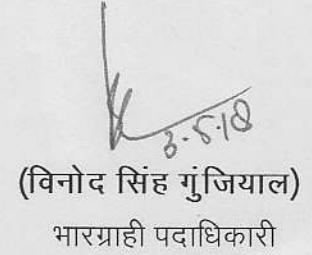 3.5.18
(विनोद सिंह गुंजियाल)
भारग्राही पदाधिकारी